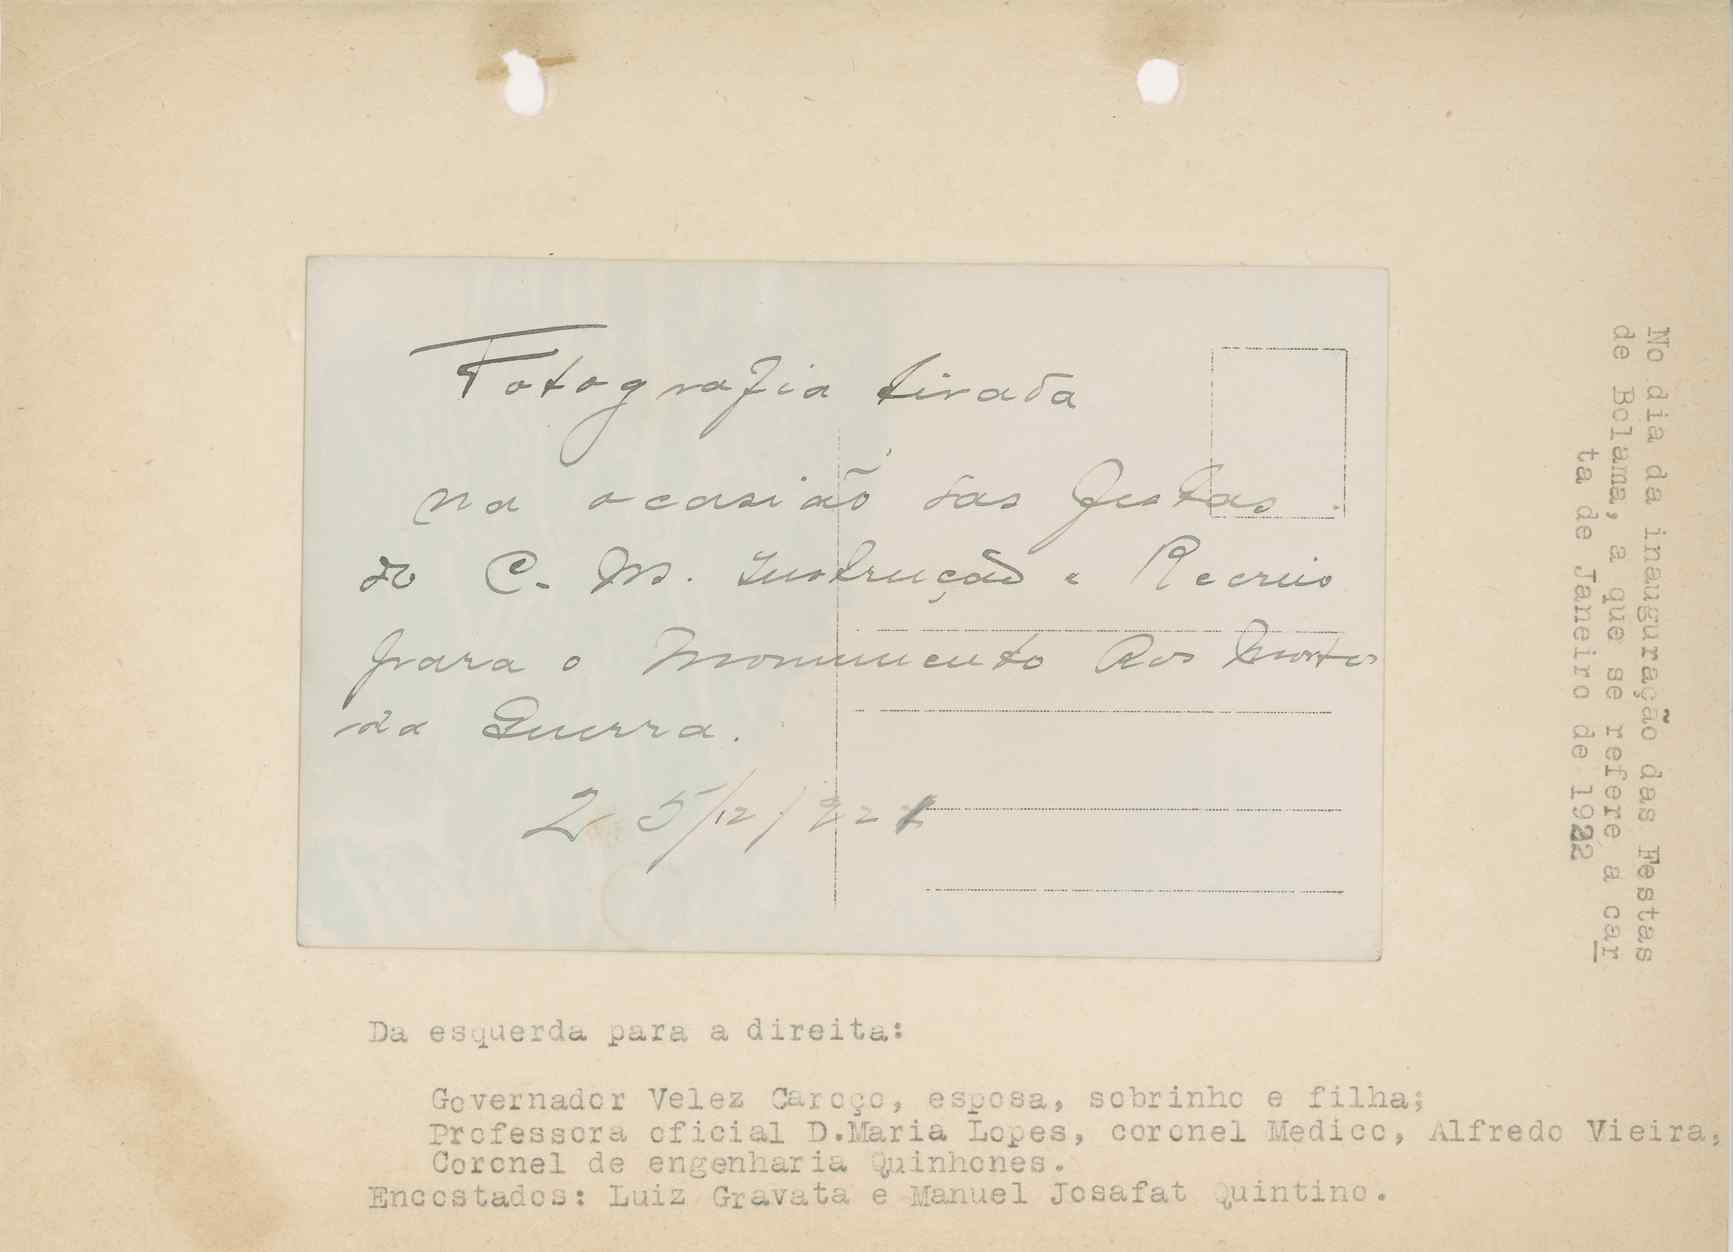 Fotografia tirada
na ocasião das festas
do C. M. Instrução e Recreio
para o Monumento Aos Mortos
da Guerra.
25/12/921
Da esquerda para a direita:
Governador Velez Caroço, esposa, sobrinho e filha;
Professora oficial D.Maria Lopes, coronel Medico, Alfredo Vieira,
Coronel de engenharia Quinhones.
Encostados: Luiz Gravata e Manuel Josafat Quintino.
No dia da inauguração das Festas
de Bolama, a que se refere a car
ta de Janeiro de 1922